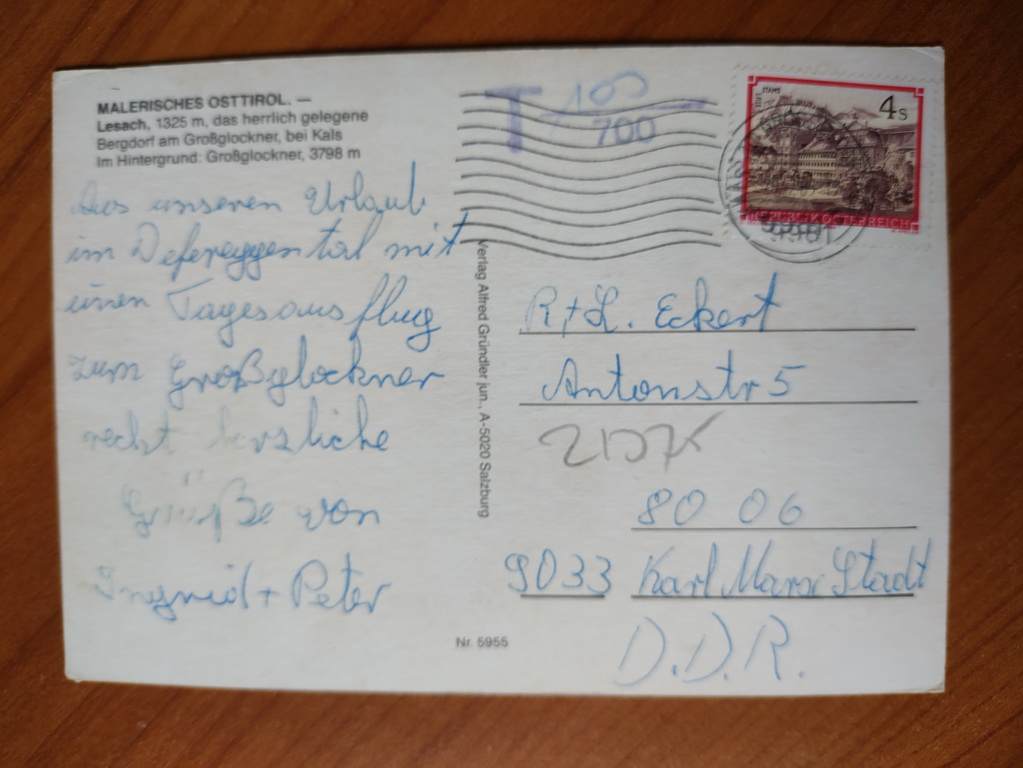 MALERISCHES OSTTIROL. —
Lesach, 1325 m, das herrlich gelegene
Bergdorf am Großglockner, bei Kals
Im Hintergrund: Großglockner, 3798 m
Aus unseren Urlaub
im Defereggental mit
einen Tagesausflug
zum Großglockner
recht herzliche
Grüße von
Ingrid + Peter
Verlag Alfred Gründler jun., A-5020 Salzburg
Nr. 5955
T 100
700
STIFT STAMS
4 S
REPUBLIK ÖSTERREICH
R + L. Eckert
Antonstr 5
80 06
9033 Karl Marx Stadt
D.D.R.